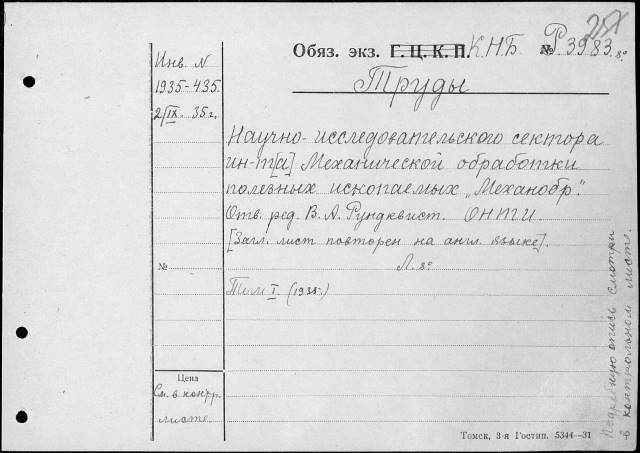 Обяз. экз. Г.Ц.К.П. К.Н.Б. № Р3983. 8º
Труды
Инв. N
1935-435.
2/IX 35г.
Научно-исследовательского сектора
ин-т[а] Механической обработки
полезных ископаемых „Механобр".
Отв. ред. В. А. Рундквист. ОНТИ
[Загл. лист повторен на англ. языке].
Л. 8º
№
Том I (1935.)
Цена
См. в контр.
листе.
Подробную опись смотри
в контрольном листе.
Томск, 3-я Гостип. 5344—31